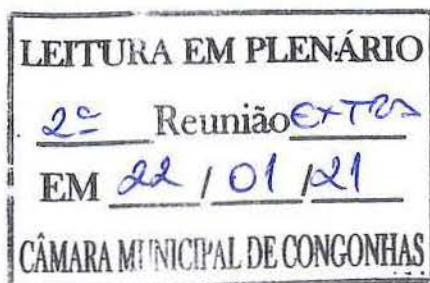 LEITURA EM PLENÁRIO
2ª Reunião EXTRA
EM 22 / 01 / 21
CÂMARA MUNICIPAL DE CONGONHAS